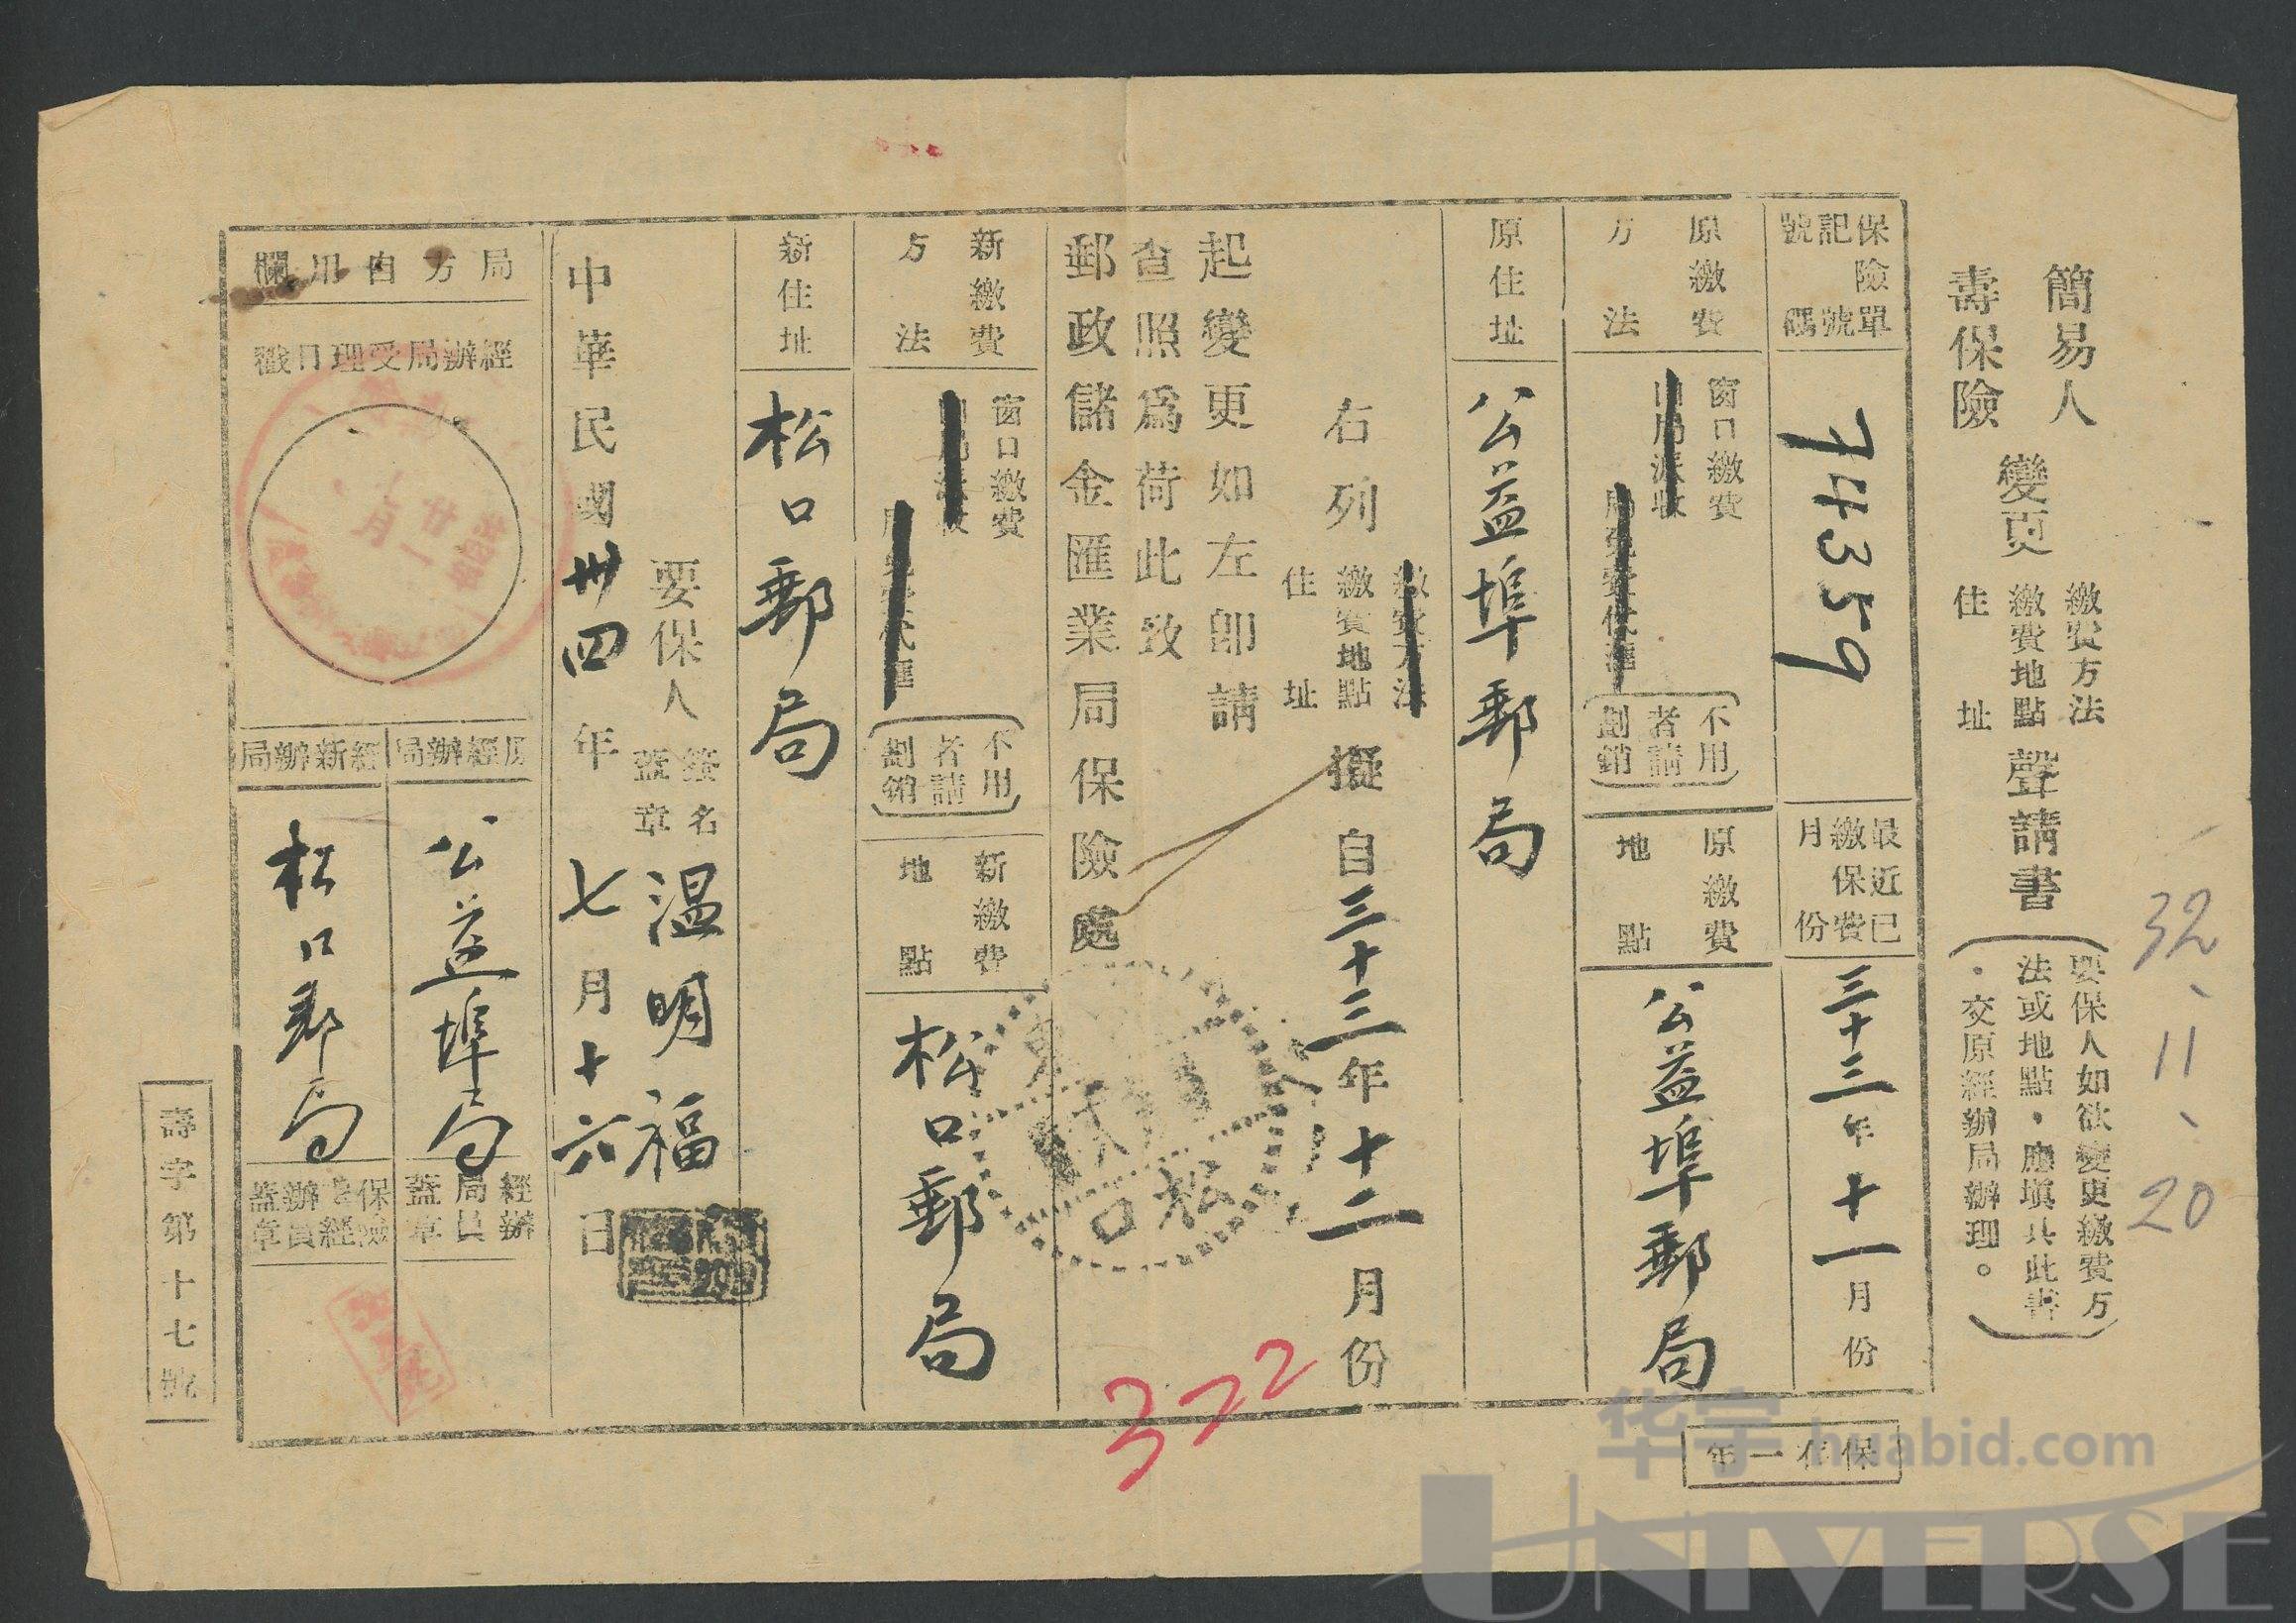 32、11、20
簡易人
壽保險
變更
繳費方法
繳費地點
住址
聲請書
（要保人如欲變更繳費方
法或地點，應填具此書
，交原經辦局辦理。）
保險單
記號
號碼
74359
最近已
繳保費
月份
三十三年十一月份
原繳費
方法
窗口繳費
由局派收
局免費代匯
（不用
者請
劃銷）
原繳費
地點
公益埠郵局
原住址
公益埠郵局
右列
繳費方法
繳費地點
住址
擬自三十三年十二月份
起變更如左卽請
查照爲荷此致
郵政儲金匯業局保險處
松口
新繳費
方法
窗口繳費
（不用
者請
劃銷）
新繳費
地點
松口郵局
新住址
松口郵局
要保人
簽名
蓋章
溫明福
中華民國卅四年七月十六日
局方自用欄
經辦局受理日戳
原經辦局
公益埠局
經辦
局員
蓋章
新經辦局
松口郵局
保險
經辦員
蓋章
壽字第十七號
322
保存一年
华宇 huabid.com
UNIVERSE